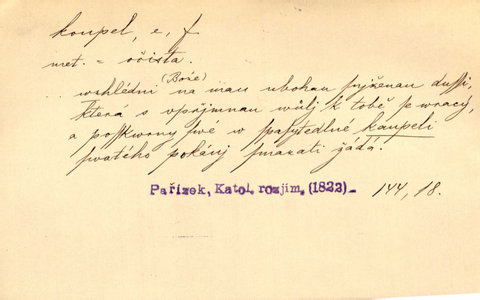 koupel, e, f
met. = očista.
.. wzhlédni (Bože) na mau ubohau sużenau dussi,
která s vpřjmnau wůlj k tobě se wracý,
a posskwrny swé w spasytedlné kaupeli
swatého pokánj smazati žádá.
Pařízek, Katol. rozjím. (1822)_ 144, 18.